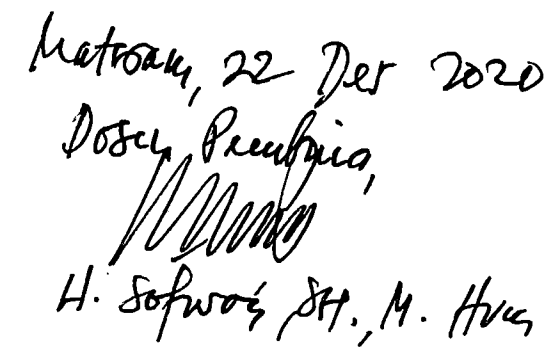 Mataram, 22 Des 2020
Dosen Pembina,
H. Sofwan, SH., M. Hum